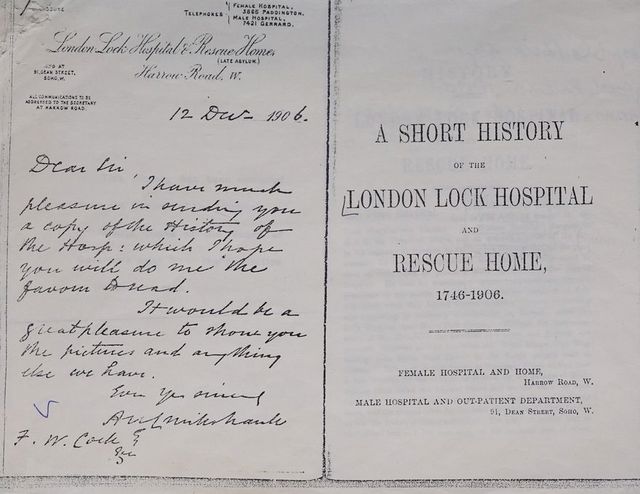 TELEPHONES
FEMALE HOSPITAL,
3865 PADDINGTON.
MALE HOSPITAL,
7421 GERRARD.
London Lock Hospital & Rescue Home
(LATE ASYLUM)
Harrow Road, W.
AND AT
91, DEAN STREET,
SOHO, W.
ALL COMMUNICATIONS TO BE
ADDRESSED TO THE SECRETARY
AT HARROW ROAD.
12 Dec 1906.
Dear Sir,
I have much
pleasure in sending you
a copy of the History of
the Hosp: which I hope
you will do me the
favour to read.
It would be a
great pleasure to show you
the pictures and anything
else we have.
F. W. Cock
Esq
A SHORT HISTORY
OF THE
LONDON LOCK HOSPITAL
AND
RESCUE HOME,
1746-1906.
FEMALE HOSPITAL AND HOME,
HARROW ROAD, W.
MALE HOSPITAL AND OUT-PATIENT DEPARTMENT,
91, DEAN STREET, SOHO, W.